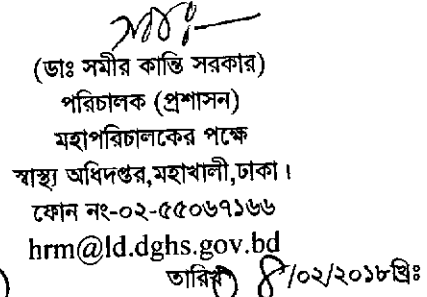 (ডাঃ সমীর কান্তি সরকার)
পরিচালক (প্রশাসন)
মহাপরিচালকের পক্ষে
স্বাস্থ্য অধিদপ্তর,মহাখালী,ঢাকা।
ফোন নং-০২-৫৫০৬৭১৬৬
hrm@ld.dghs.gov.bd
তারিখ /০২/২০১৮খ্রিঃ